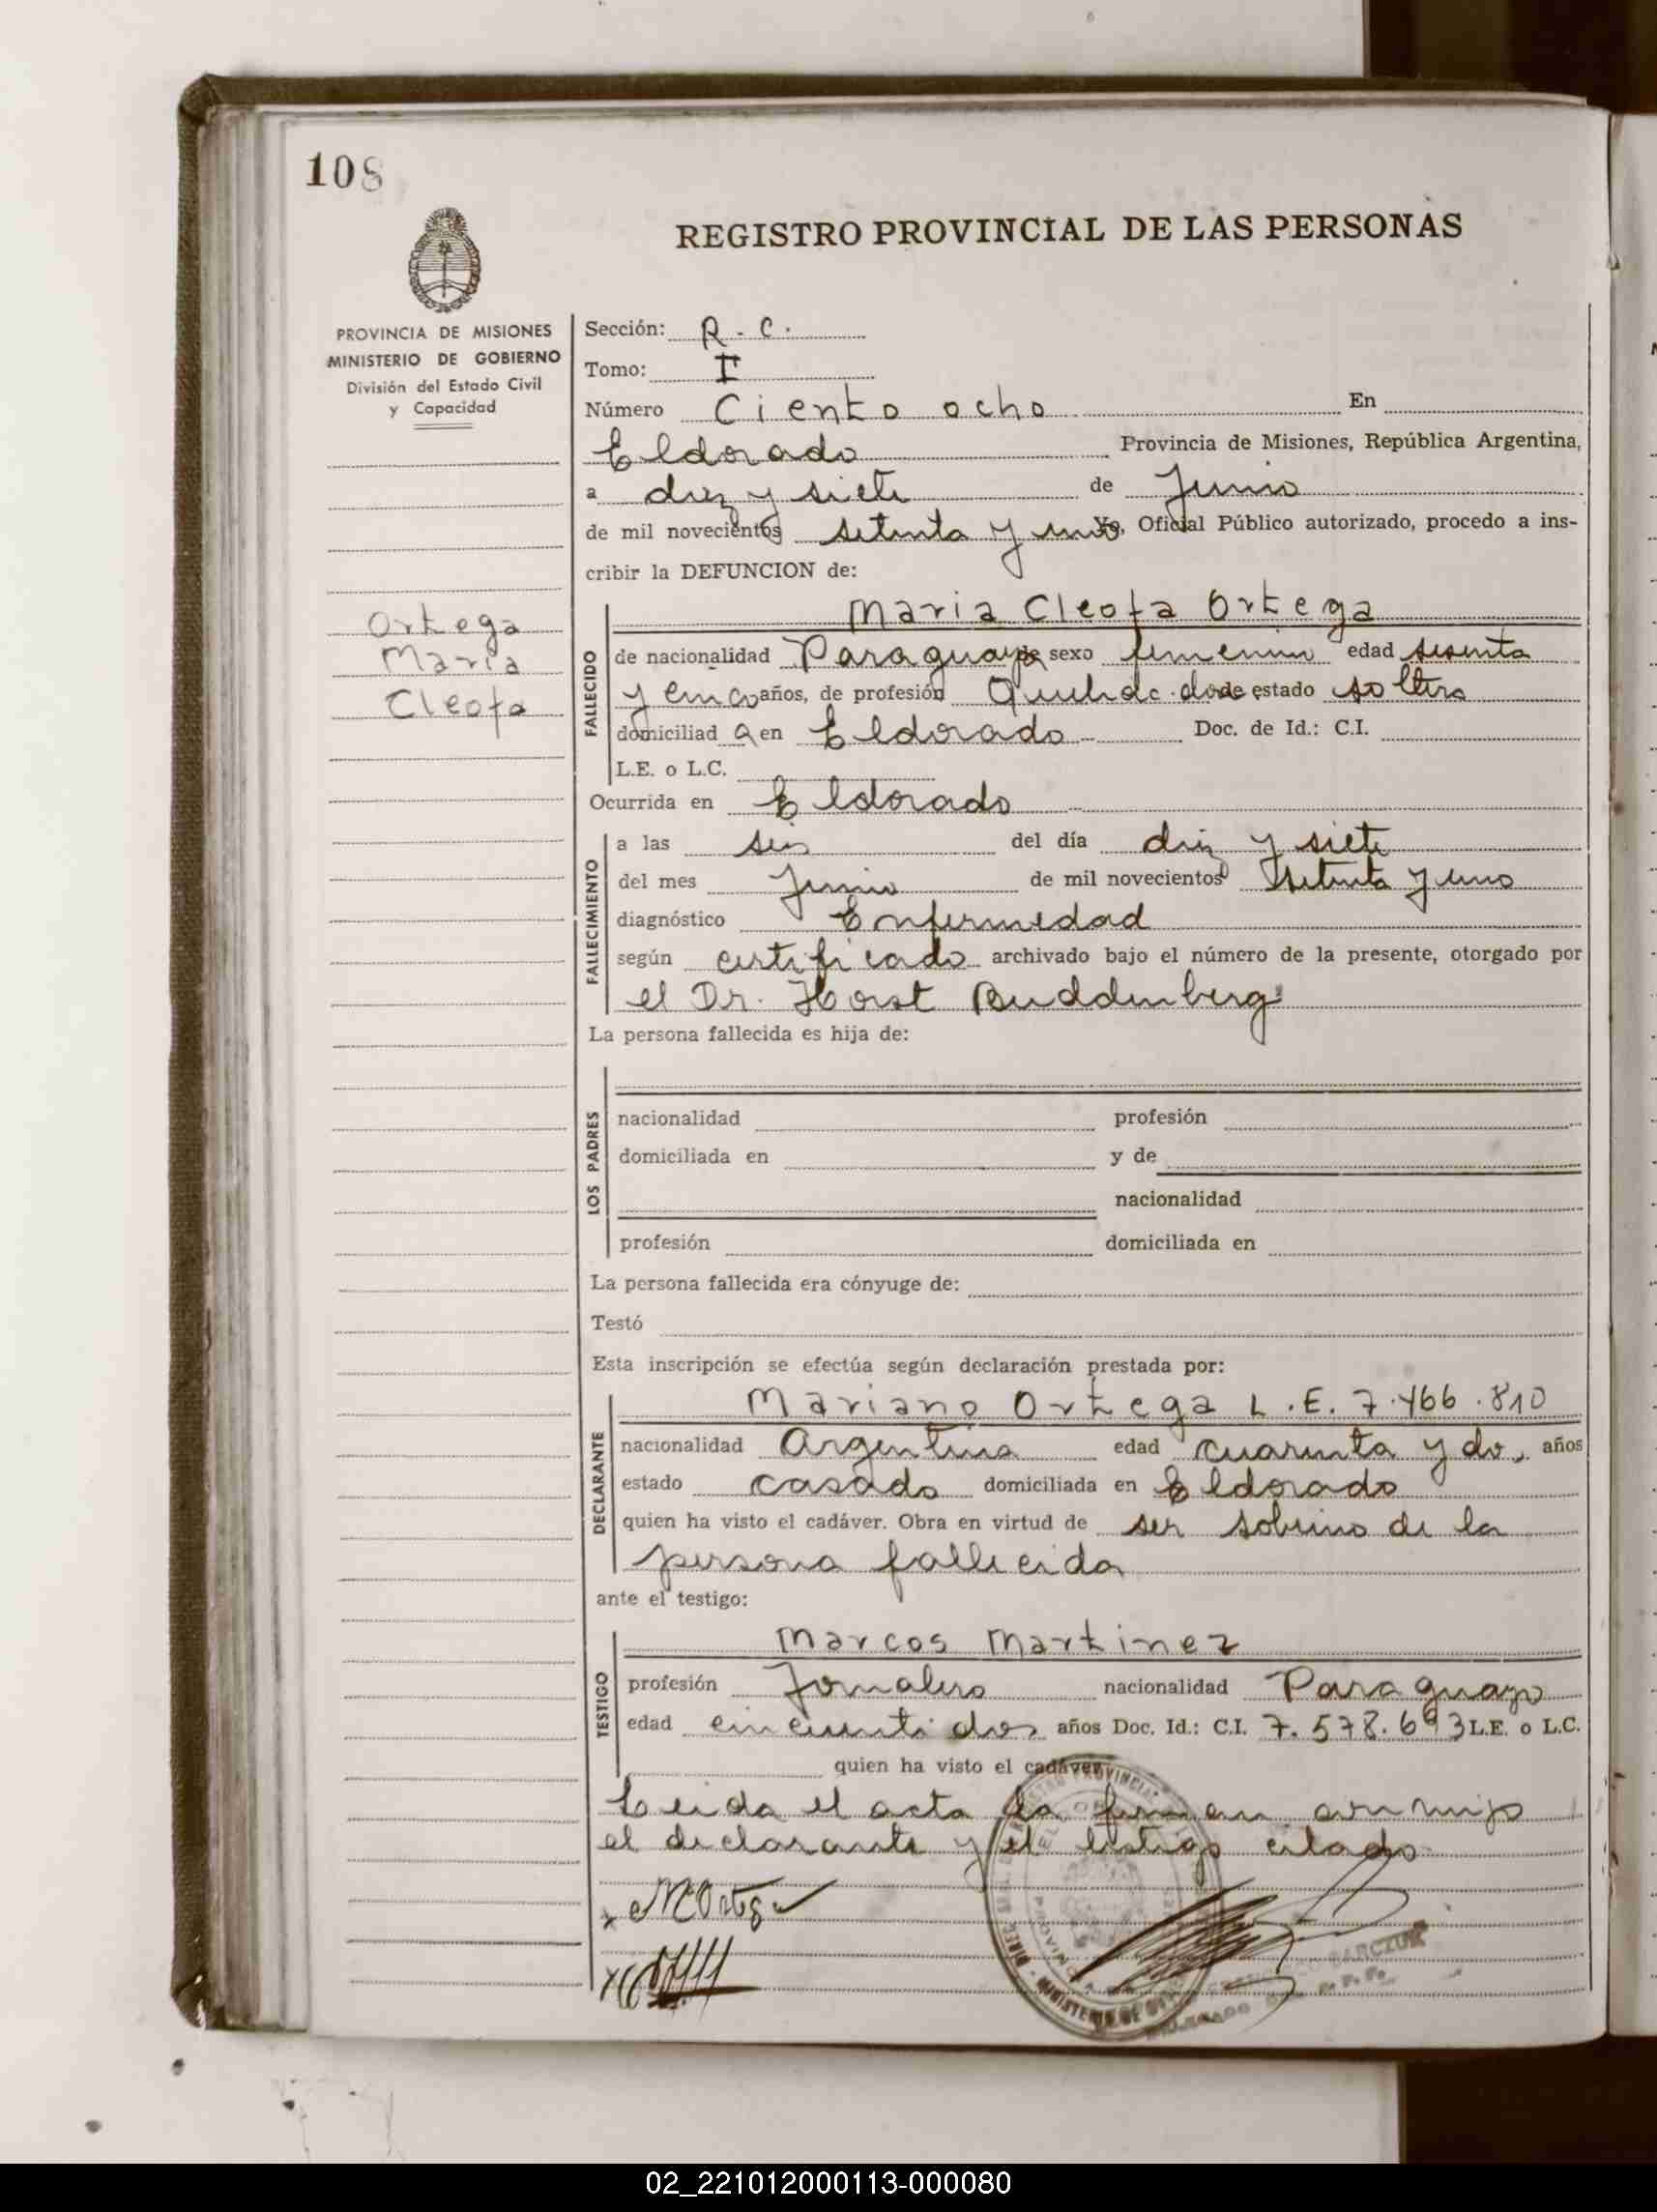 108
REGISTRO PROVINCIAL DE LAS PERSONAS
PROVINCIA DE MISIONES
MINISTERIO DE GOBIERNO
División del Estado Civil
y Capacidad
Ortega
Maria
Cleofa
Sección: R. C.
Tomo: I
Número Ciento ocho En
Eldorado Provincia de Misiones, República Argentina,
a diez y siete de Junio
de mil novecientos setenta y uno Yo, Oficial Público autorizado, procedo a ins-
cribir la DEFUNCION de:
FALLECIDO
Maria Cleofa Ortega
de nacionalidad Paraguaya de sexo femenino edad sesenta
y cinco años, de profesión Quehac. dom. de estado soltera
domiciliad a en Eldorado Doc. de Id.: C.I.
L.E. o L.C.
Ocurrida en Eldorado
FALLECIMIENTO
a las seis del día diez y siete
del mes Junio de mil novecientos setenta y uno
diagnóstico Enfermedad
según certificado archivado bajo el número de la presente, otorgado por
el Dr. Horst Buddenberg
La persona fallecida es hija de:
LOS PADRES
nacionalidad profesión
domiciliada en y de
nacionalidad
profesión domiciliada en
La persona fallecida era cónyuge de:
Testó
Esta inscripción se efectúa según declaración prestada por:
DECLARANTE
Mariano Ortega L.E. 7.466.810
nacionalidad Argentina edad cuarenta y dos años
estado casado domiciliada en Eldorado
quien ha visto el cadáver. Obra en virtud de ser sobrino de la
persona fallecida
ante el testigo:
TESTIGO
Marcos Martinez
profesión Jornalero nacionalidad Paraguayo
edad cincuenti dos años Doc. Id.: C.I. 7.578.693 L.E. o L.C.
quien ha visto el cadáver.
Leida el acta la firman conmigo
el declarante y el testigo citado
MOrtega